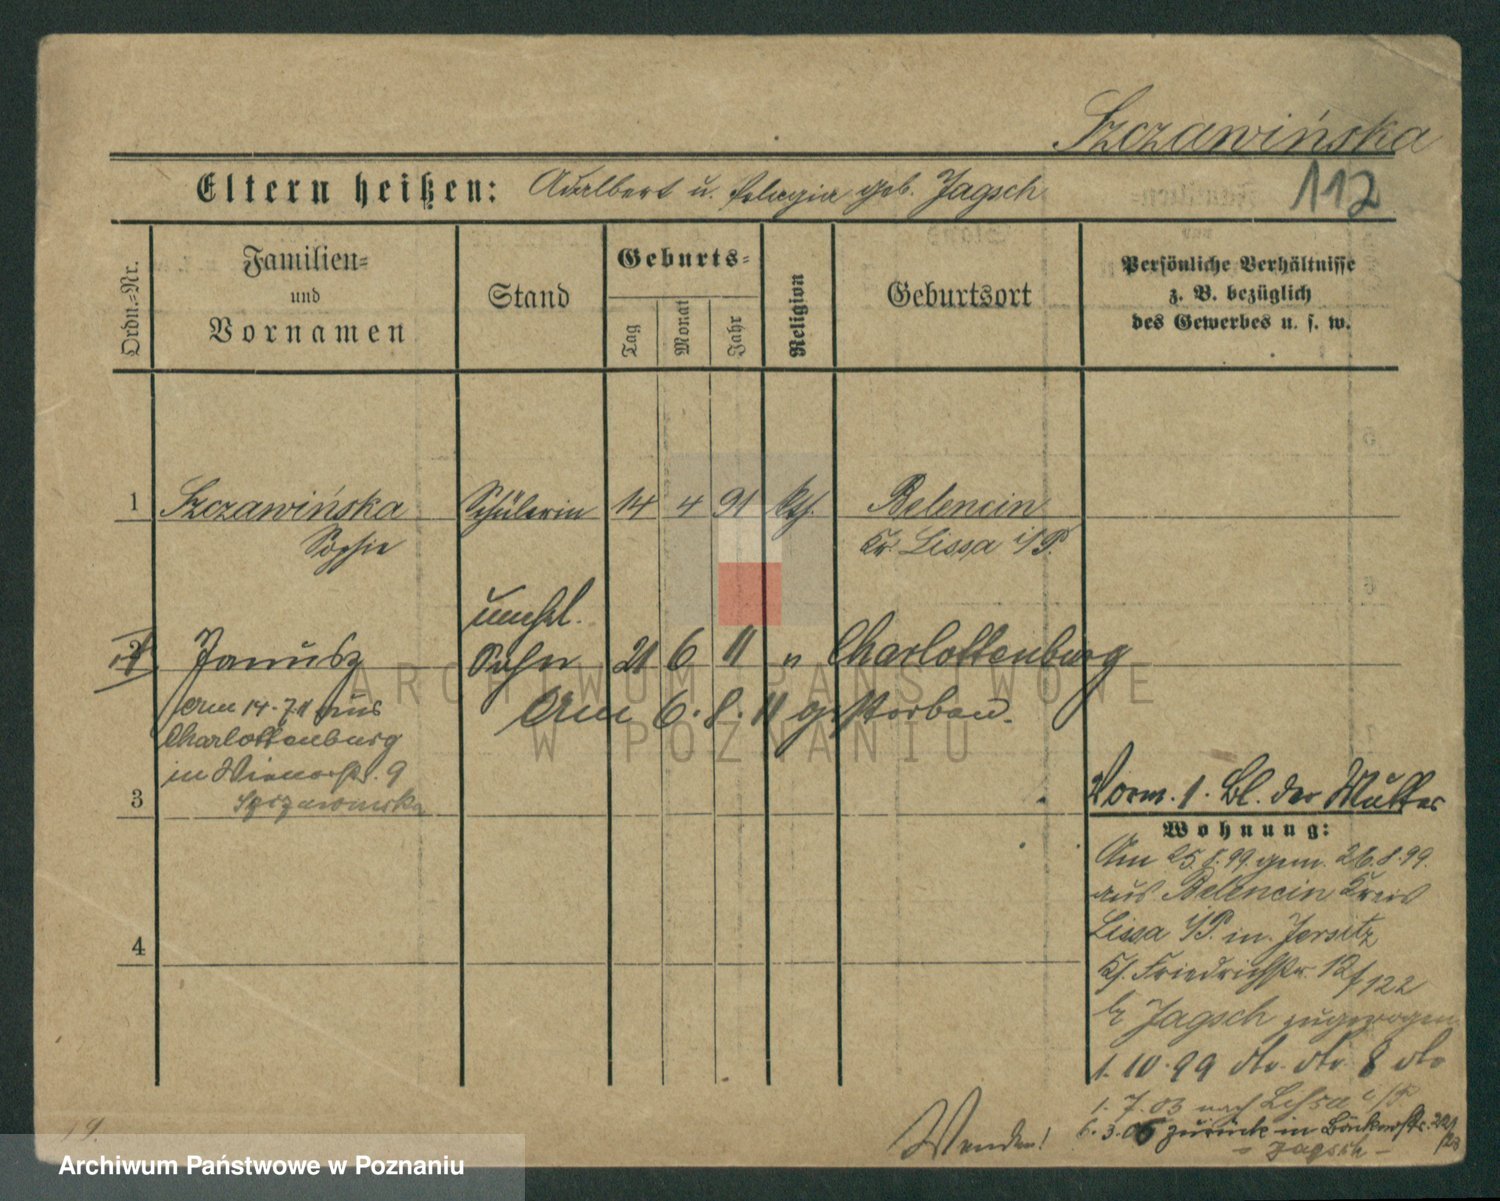 Szczawińska
Eltern heißen: Adalbert u. Pelagia geb. Jagsch
112
Ordn.-Nr.
Familien-
und
Vornamen
Stand
Geburts-
Tag
Monat
Jahr
Religion
Geburtsort
Persönliche Verhältnisse
z. B. bezüglich
des Gewerbes u. s. w.
1 Szczawińska Schülerin 14 4 91 kth. Belencin
Sophie Kr. Lissa i/P.
unehl.
2 Janusz Sohn 21 6 11 " Charlottenburg
Am 14.7.11 aus Am 6.8.11 gestorben.
Charlottenburg
in Wienerstr. 9
Szczawinska
3
Vorm. 1. Bl. der Mutter
Wohnung:
Am 25.8.99 gem. 26.8.99.
aus Belencin Kreis
Lissa i/P. in Jersitz
Friedrichstr. 12/122
b/ Jagsch zugezogen
4
1.10.99 dto. dto. 8 dto
1.7.03 nach Lissa i/P.
6.3.06 zurück in Bäckerstr. 22/23
- Jagsch -
Wenden!
19.
ARCHIWUM PAŃSTWOWE
W POZNANIU
Archiwum Państwowe w Poznaniu